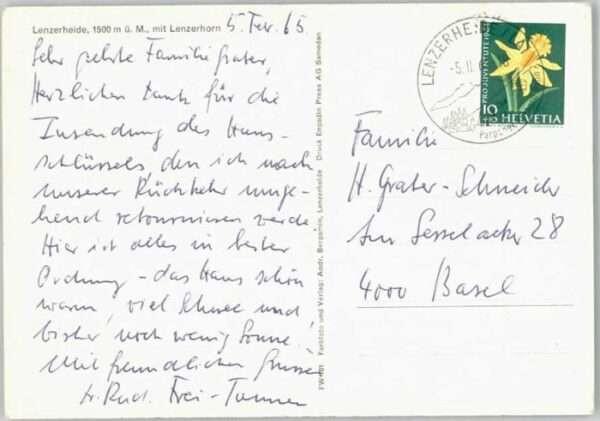 Lenzerheide, 1500 m ü. M., mit Lenzerhorn
5. Febr. 65
Sehr geehrte Familie Grater,
Herzlichen Dank für die
Zusendung des Haus-
schlüssels, den ich nach
unserer Rückkehr umge-
hend retournieren werde.
Hier ist alles in bester
Ordnung - das Haus schön
warm, viel Schnee und
bisher noch wenig Sonne!
Mit freundlichen Grüssen
Frei-Tanner
FW 101 Farbfoto und Verlag: Andr. Bergamin, Lenzerheide Druck Engadin Press AG Samedan
LENZERHEIDE
-5.II.
PRO JUVENTUTE
10
HELVETIA
Familie
H. Grater-Schneider
Im Sesselacker 28
4000 Basel